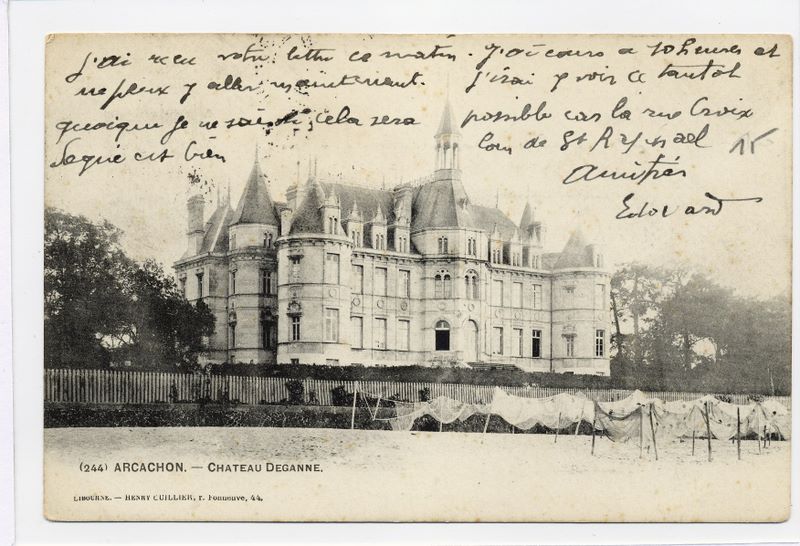 J'ai reçu votre lettre ce matin. J'ai cours a 10 heures et
ne peux y aller maintenant. J'irai y voir ce tantot
quoique je ne sais si cela sera possible car la rue Croix
Segué est bien loin de St Raphael
15
Amitiés
Edouard
(244) ARCACHON. — CHATEAU DEGANNE.
LIBOURNE. — HENRY CUILLIER, r. Fonneuve, 44.